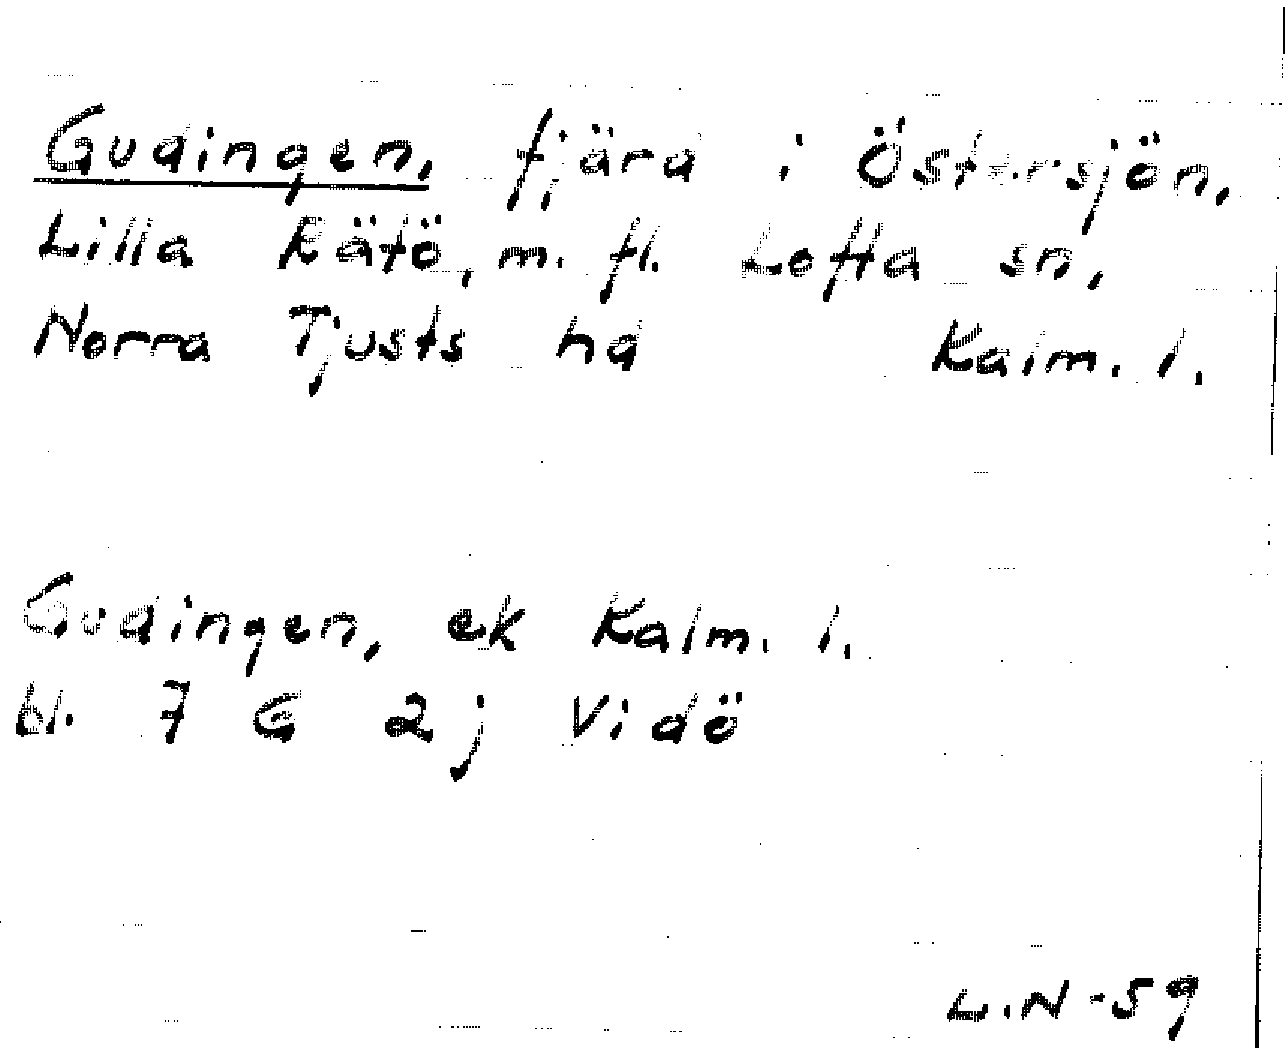 Gudingen, fjärd i Östersjön,
Lilla Rätö, m. fl. Lofta sn,
Norra Tjusts hd Kalm. l.
Gudingen, ek Kalm. l.
bl. 7 G 2j Vidö
L.N-59